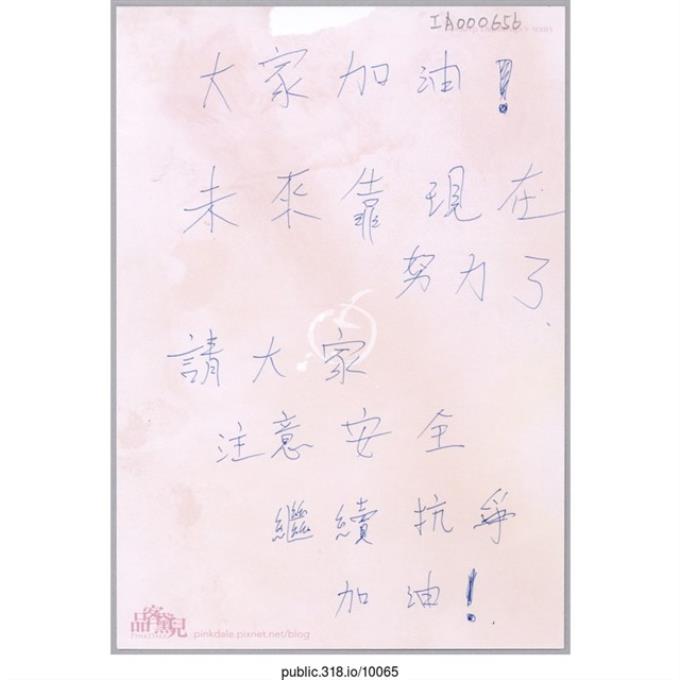 IA000656
大家加油！
未來靠現在
努力了.
請大家
注意安全
繼續抗爭
加油！
品客黛兒
PINKDALE
pinkdale.pixnet.net/blog
public.318.io/10065